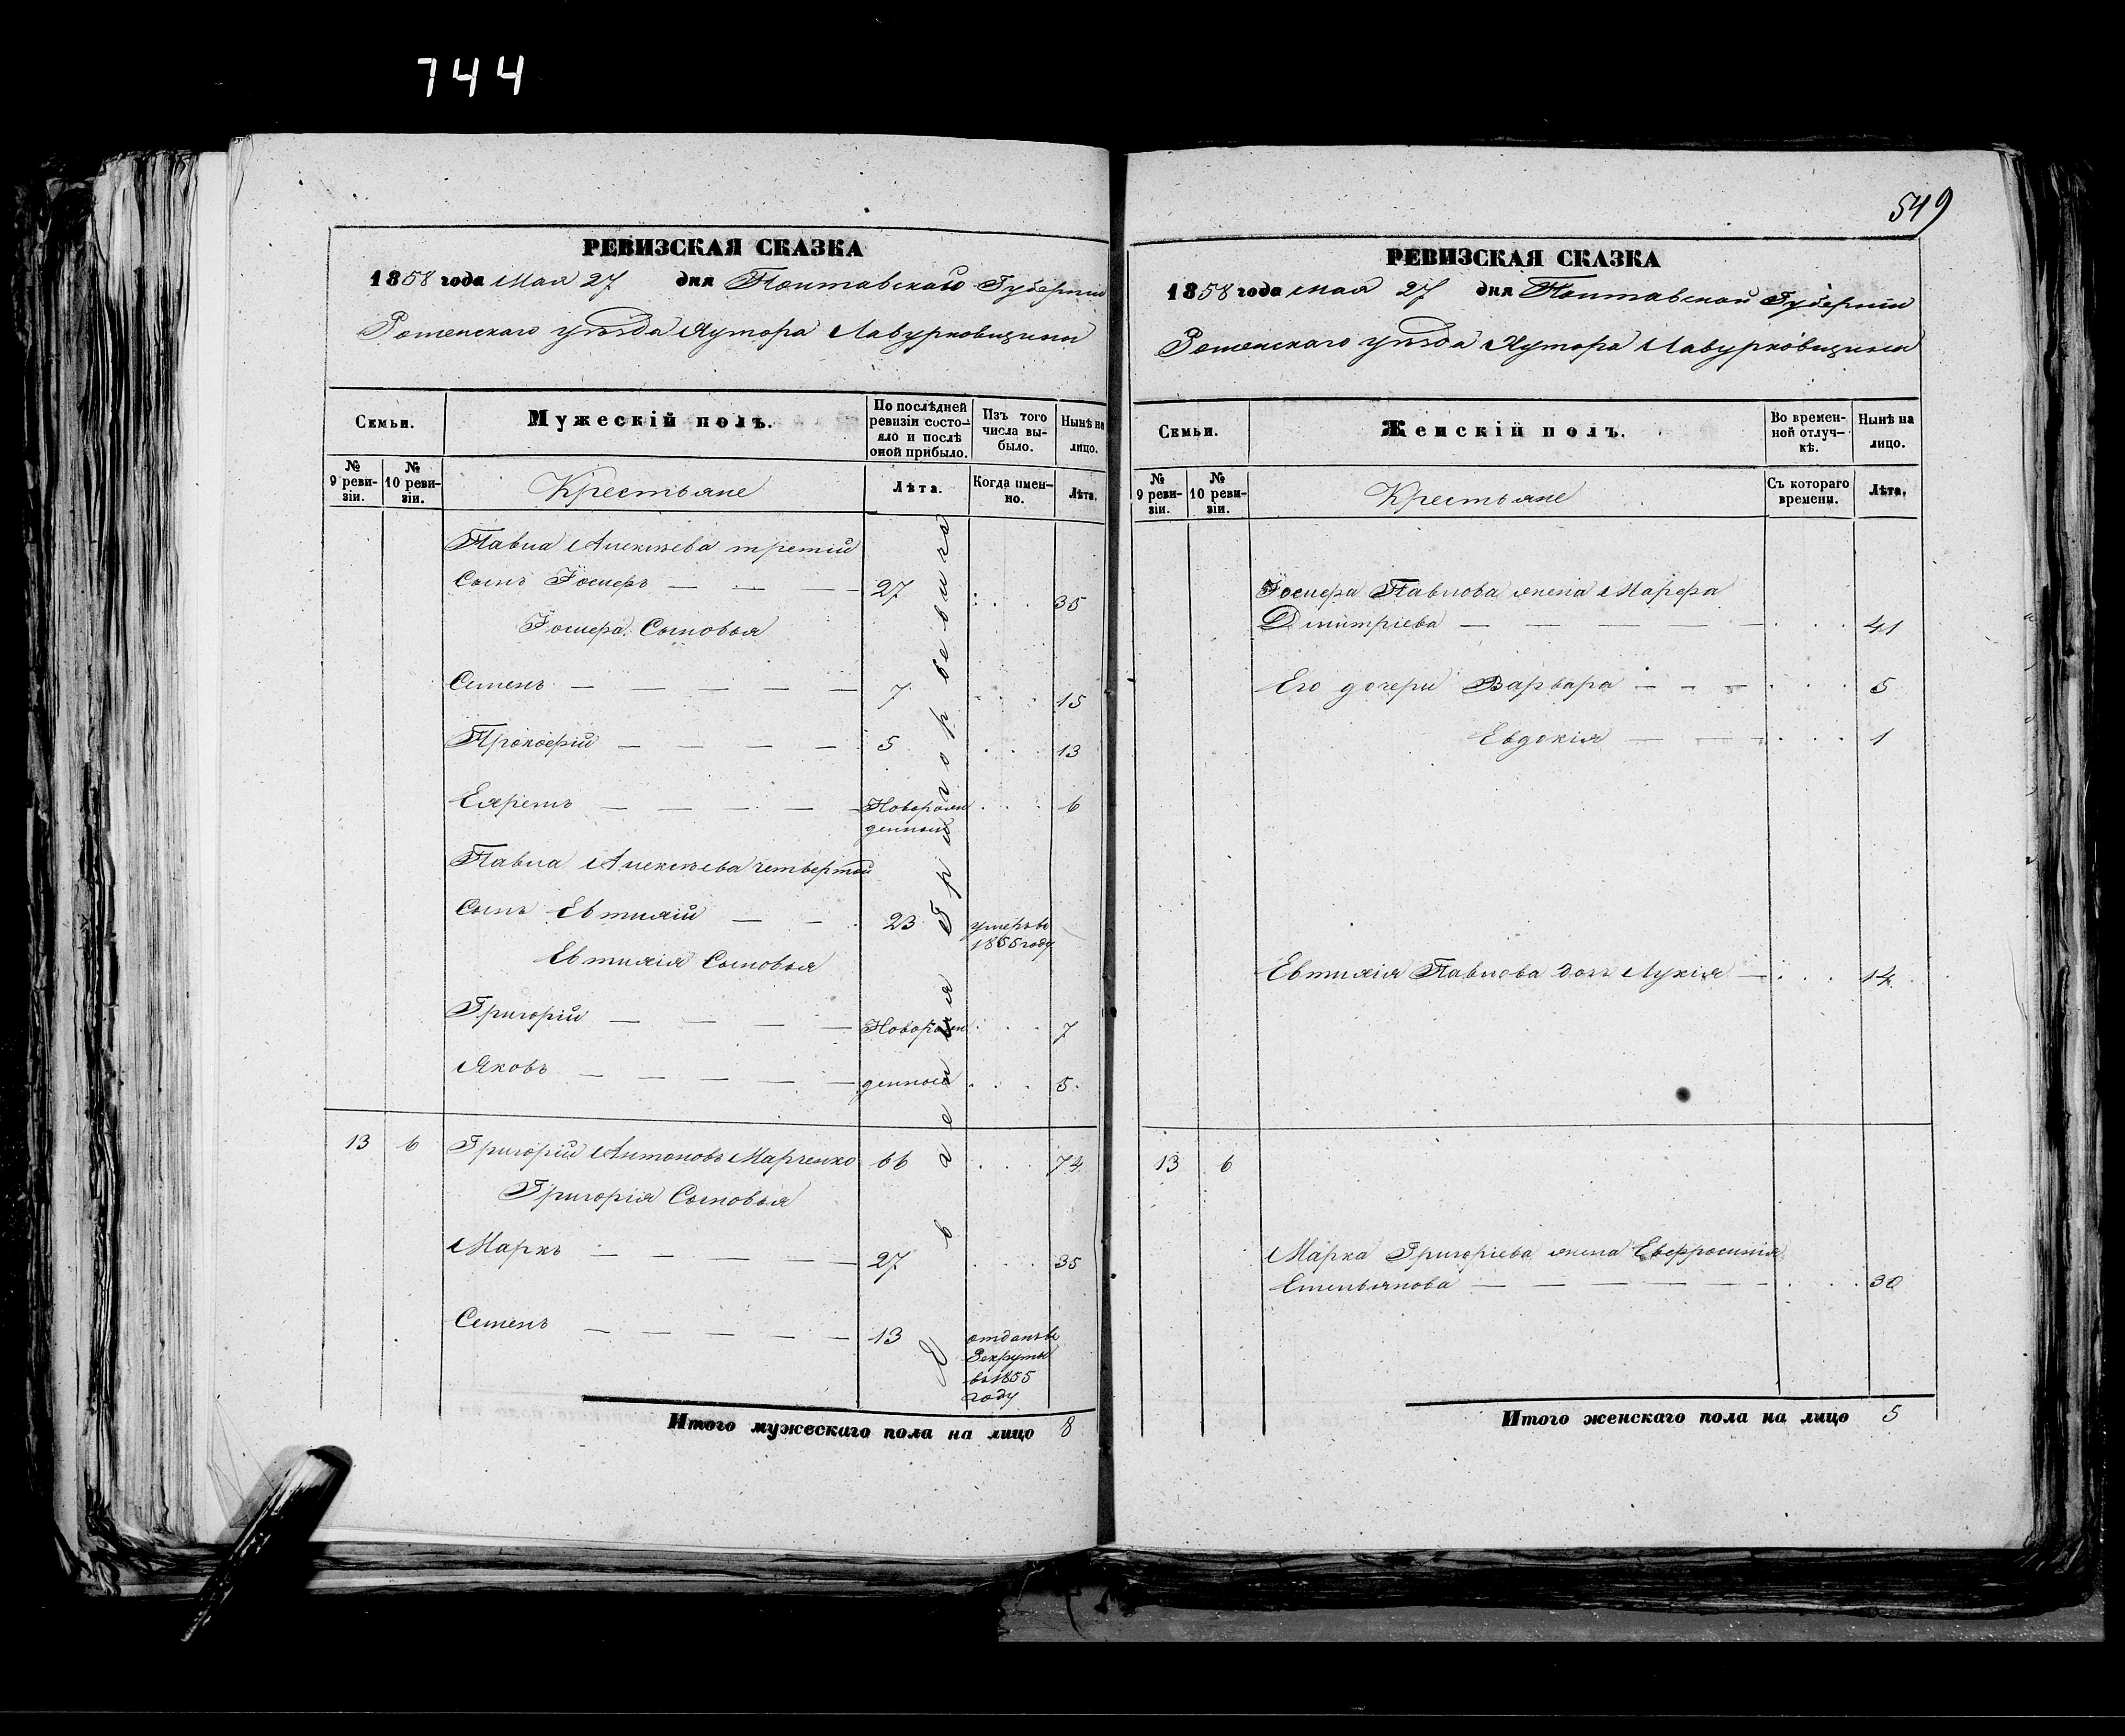 744
549
РЕВИЗСКАЯ СКАЗКА
1858 года Мая 27 дня Полтавской Губерніи
Роменскаго уѣзда Хутора Лавурковщины
Семьи.
Мужескій полъ.
По послѣдней ревизіи состо-
яло и послѣ
оной прибыло.
Изъ того
числа вы-
было.
Нынѣ на
лицо.
№
9 реви-
зіи.
№
10 реви-
зіи.
Крестьяне
Лѣта.
Когда имен-
но.
Лѣта.
Павла Алексѣева третій
Сынъ Іосифъ — — — 27 35
Іосифа Сыновья
Семенъ — — — — — 7 15
Прокофій — — — — 5 13
— — — —Новорож
денный 6
Павла Алексѣева четвертой
Сынъ Евтихій — — 23 умеръ въ
1855 году
Евтихія Сыновья
Григорій — — — — Новорож 7
Яковъ — — — — — денные 5.
13 6 Григорій Антоновъ Марченко 66 74
Григорія Сыновья
Маркъ — — — — — 27 35
Семенъ — — — — — 13 отданъ въ
Рекруты
въ 1855
году
Итого мужескаго пола на лицо 8
РЕВИЗСКАЯ СКАЗКА
1858 года мая 27 дня Полтавской Губерніи
Роменскаго уѣзда Хутора Лавурковщины
Семьи.
Женскій полъ.
Во времен-
ной отлуч-
кѣ.
Нынѣ на
лицо.
№
9 реви-
зіи.
№
10 реви-
зіи.
Крестьяне
Съ котораго
времени.
Лѣта.
Іосифа Павлова жена Марфа
Дмитріева — — — — — 41
Его дочери Варвара — — — 5
Евдокія — — — 1
Евтихія Павлова дочь Лукія — 14
13 6
Марка Григоріева жена Евфросинія
Емельянова — — — — — — 30
Итого женскаго пола на лицо 5